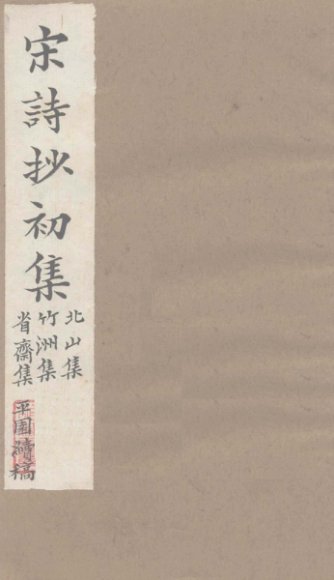 宋詩抄初集
北山集
竹洲集
省齋集
平園續稿